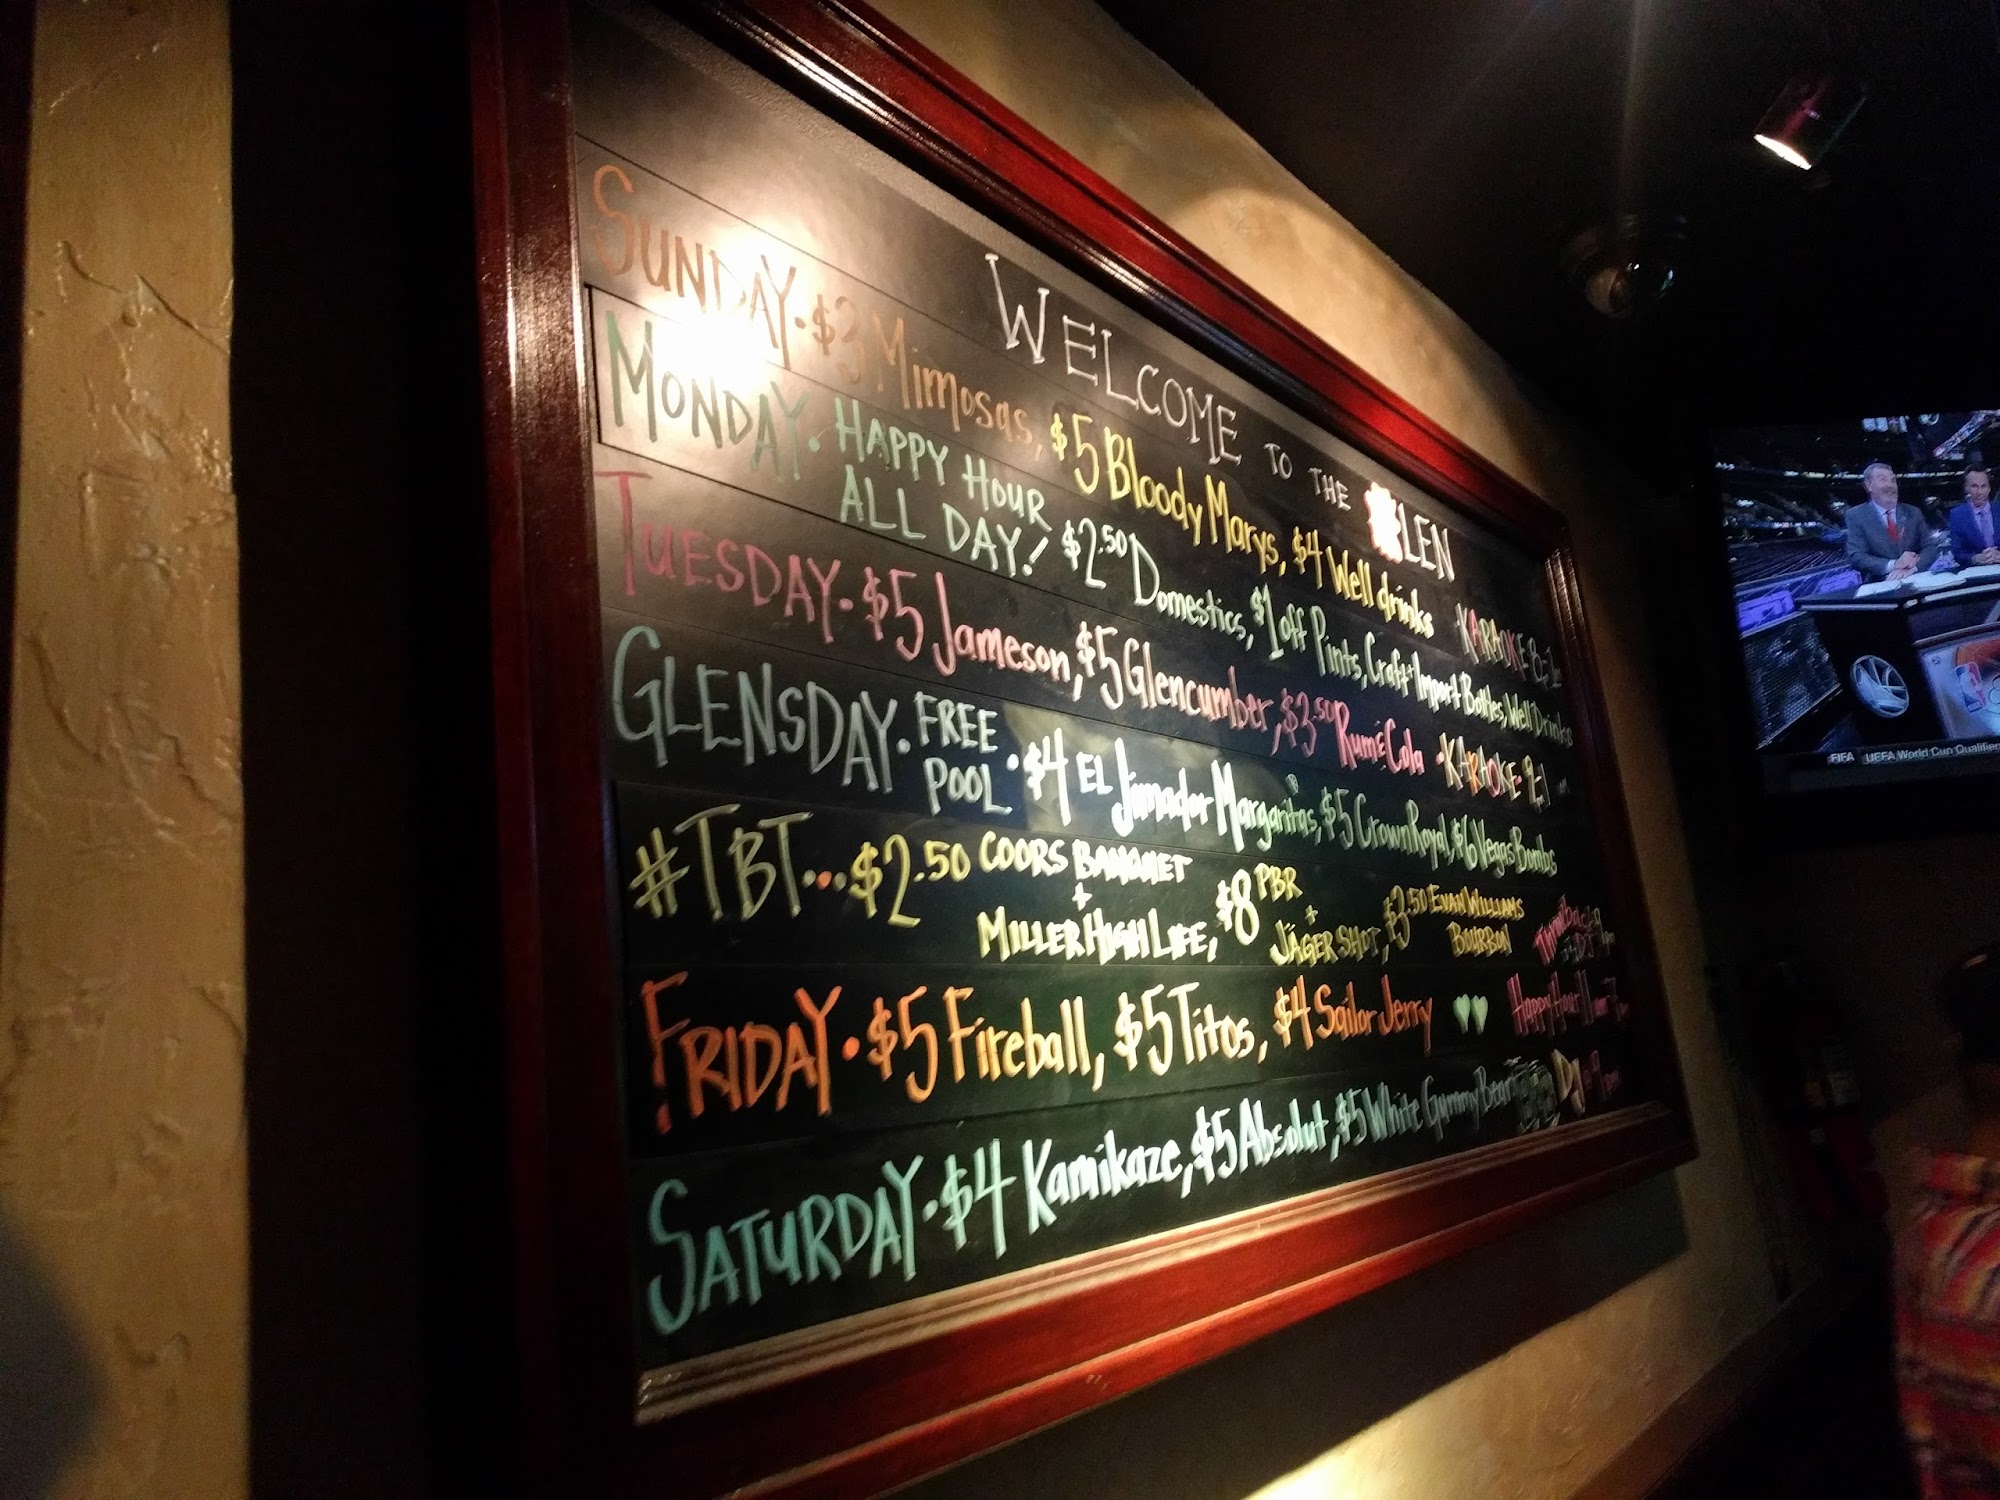 WELCOME TO THE GLEN
SUNDAY • $3 Mimosas, $5 Bloody Marys, $4 Well drinks KARAOKE
MONDAY • HAPPY HOUR ALL DAY! $2.50 Domestics, $1 off Pints, Craft + Import Bottles, Well Drinks
TUESDAY • $5 Jameson, $5 Glencumber, $3.50 Rum & Cola • KARAOKE
GLENSDAY • FREE POOL • $4 EL Jimador Margaritas, $5 Crown Royal, $6 Vegas Bombs
#TBT... $2.50 COORS BANQUET + MILLER HIGH LIFE, $8 PBR + JÄGER SHOT, $3.50 EVAN WILLIAMS BOURBON
FRIDAY • $5 Fireball, $5 Titos, $4 Sailor Jerry Happy Hour
SATURDAY • $4 Kamikaze, $5 Absolut, $5 White Gummy Bear DJ
FIFA UEFA World Cup Qualifier